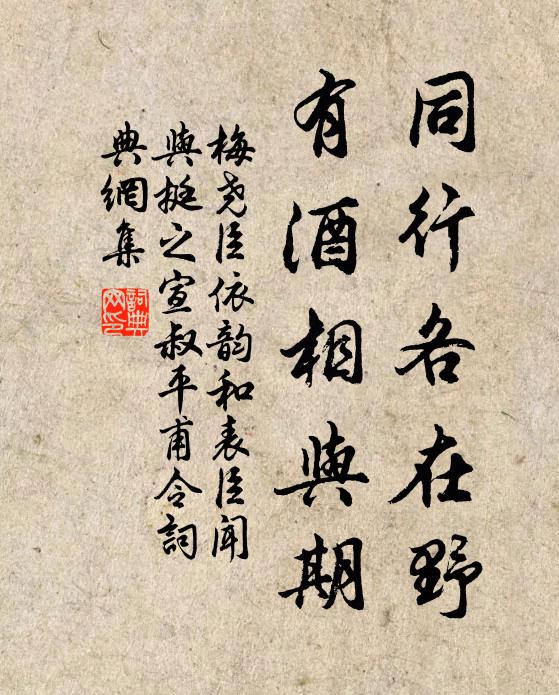 同行各在野
有酒相與期
梅堯臣依韵和表臣聞
與挺之宣叔平甫令詞
典網集
詞典網印